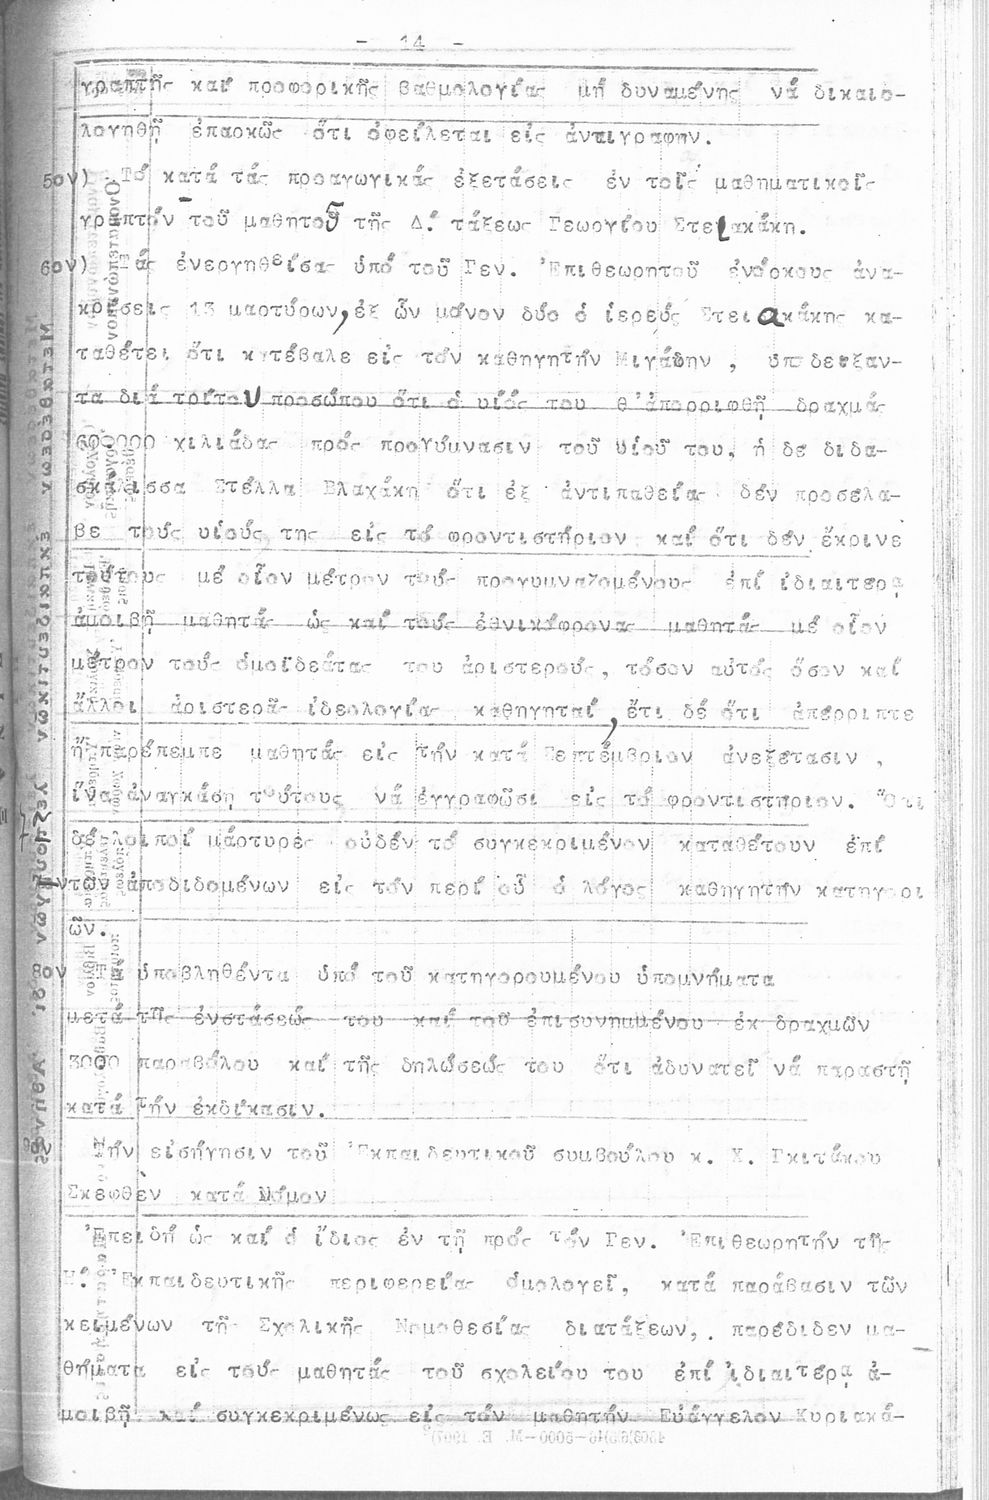 - 14 -
γραπτῆς καί προφορικῆς βαθμολογίας μή δυναμένης νά δικαιο-
λογηθῇ ἐπαρκῶς ὅτι ὀφείλεται εἰς ἀντιγραφην.
5ον) Τό κατά τάς προαγωγικάς ἐξετάσεις ἐν τοῖς μαθηματικοῖς
γραπτόν τοῦ μαθητοῦ τῆς Δ΄ τάξεως Γεωργίου Στειακάκη.
6ον) Τάς ἐνεργηθείσας ὑπό τοῦ Γεν. Ἐπιθεωρητοῦ ἐνόρκους ἀνα-
κρίσεις 13 μαρτύρων, ἐξ ὧν μόνον δύο ὁ ἱερεύς Στειακάκης κα-
ταθέτει ὅτι κατέβαλε εἰς τόν καθηγητήν Μιγάδην , ὑποδειξαν-
τα διά τρίτου προσώπου ὅτι ὁ υἱός του θ'ἀπορριφθῇ δραχμάς
600000 χιλιάδας πρός προγύμνασιν τοῦ υἱοῦ του, ἡ δε διδα-
σκάλισσα Στέλλα Βλαχάκη ὅτι ἐξ ἀντιπαθείας δέν προσελα-
βε τούς υἱούς της εἰς τό φροντιστήριον καί ὅτι δέν ἔκρινε
τούτους μέ οἷον μέτρον τούς προγυμναζομένους ἐπί ἰδιαιτερᾳ
ἀμοιβῇ μαθητάς ὡς καί τούς ἐθνικόφρονας μαθητάς μέ οἷον
μέτρον τούς ὁμοϊδεάτας του ἀριστερούς, τόσον αὐτός ὅσον καί
ἄλλοι ἀριστερᾶς ἰδεολογίας καθηγηταί, ἔτι δέ ὅτι ἀπέρριπτε
ἤ παρέπεμπε μαθητάς εἰς τήν κατά Σεπτέμβριον ἀνεξέτασιν ,
ἵνα ἀναγκάσῃ τούτους νά ἐγγραφῶσι εἰς τό φροντιστήριον. Ὅτι
δέ λοιποί μάρτυρες οὐδέν τό συγκεκριμένον καταθέτουν ἐπί
τῶν ἀποδιδομένων εἰς τόν περί οὗ ὁ λόγος καθηγητήν κατηγορι
ῶν.
8ον Τά ὑποβληθέντα ὑπό τοῦ κατηγορουμένου ὑπομνήματα
μετά τῆς ἐνστάσεώς του καί τοῦ ἐπισυνημμένου ἐκ δραχμῶν
3000 παραβόλου καί τῆς δηλώσεώς του ὅτι ἀδυνατεῖ νά παραστῇ
κατά τήν ἐκδίκασιν.
9ον Τήν εἰσήγησιν τοῦ Ἐκπαιδευτικοῦ συμβούλου κ. Χ. Γκιτάκου
Σκεφθὲν κατά Νόμον
Ἐπειδή ὡς καί ὁ ἴδιος ἐν τῇ πρός τόν Γεν. Ἐπιθεωρητήν τῆς
Η΄ Ἐκπαιδευτικῆς περιφερείας ὁμολογεῖ, κατά παράβασιν τῶν
κειμένων τῆς Σχολικῆς Νομοθεσίας διατάξεων, παρέδιδεν μα-
θήματα εἰς τούς μαθητάς τοῦ σχολείου του ἐπί ἰδιαιτέρᾳ ἀ-
μοιβῇ καί συγκεκριμένως εἰς τόν μαθητήν Εὐάγγελον Κυριακά-